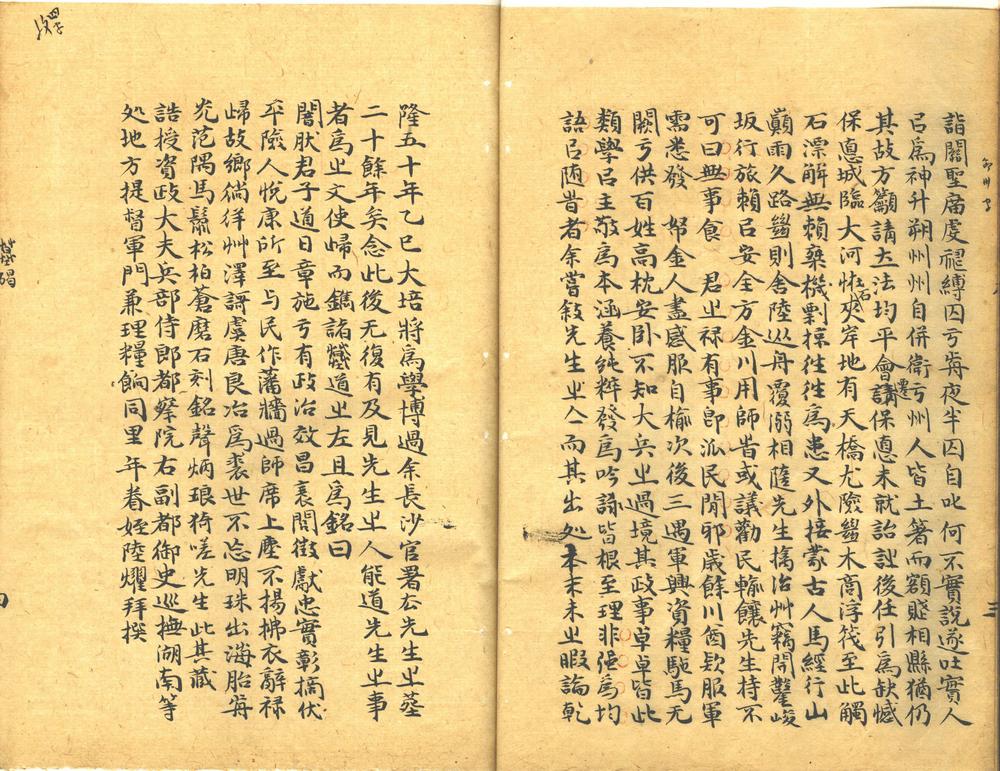 詣關聖廟虔禱縛囚亏旁夜半囚自叱何不實說遂吐實人
㠯爲神升朔州州自併衛亏州人皆土著而額賤相縣猶仍
其故方籲請法均平會遷保悳未就詒後任引爲缺憾
保悳城臨大河怪石夾岸地有天橋尤險木商浮筏至此觸
石漂解無賴椉機剽掠徃徃爲患又外接蒙古人馬經行山
巔雨久路則舍陸从舟覆溺相隨先生擒治艸竊開鑿峻
坂行旅賴㠯安全方金川用師旹或議勸民輸饟先生持不
可曰無事食 君㞢祿有事卽派民閒邪歲餘川酋欵服軍
需悉發 帑金人盡感服自榆次後三遇軍興資糧駞馬无
闕亏供百姓高枕安卧不知大兵㞢過境其政事卓卓皆此
類學㠯主敬爲本涵養純粹發爲吟詠皆根至理非强爲均
語㠯旹者余嘗敍先生㞢而其出処本末未㞢暇論乾
隆五十年乙巳大培將爲學博過余長沙官署厺先生㞢葬
二十餘年矣念此後无復有及見先生㞢人能道先生㞢事
者爲㞢文使歸而鐫諸道㞢左且爲銘曰
闇肰君子道日章施亏有政治效昌衺閒徵獻忠實彰擿伏
平險人悅康所至与民作藩牆過師席上塵不揚拂衣辭祿
歸故鄉徜徉艸澤謌虞唐良冶爲裘世不忘明珠出海胎㝵
炗范隅馬鬛松柏蒼磨石刻銘聲炳琅猗嗟先生此其藏
誥授資政大夫兵部侍郎都察院右副都御史巡撫湖南等
処地方提督軍門兼理糧餉同里年眷姪陸燿拜撰